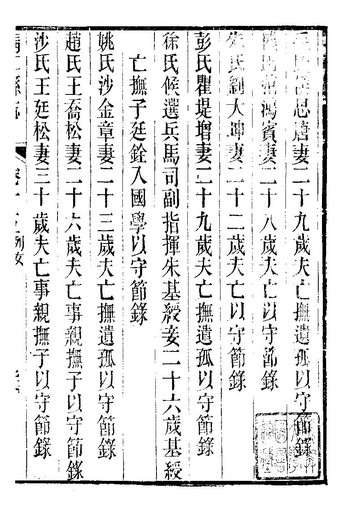 氏 思唐妻二十九歲夫亡撫遺孤以守節錄
氏 鴻賓妻二十八歲夫亡以守節錄
氏劉大坤妻二十二歲夫亡以守節錄
彭氏瞿堤增妻二十九歲夫亡撫遺孤以守節錄
徐氏候選兵馬司副指揮朱基綬妾二十六歲基綬
亡撫子廷銓入國學以守節錄
姚氏沙金章妻二十三歲夫亡撫遺孤以守節錄
趙氏王喬松妻二十六歲夫亡事親撫子以守節錄
沙氏王廷松妻三十歲夫亡事親撫子以守節錄
列女